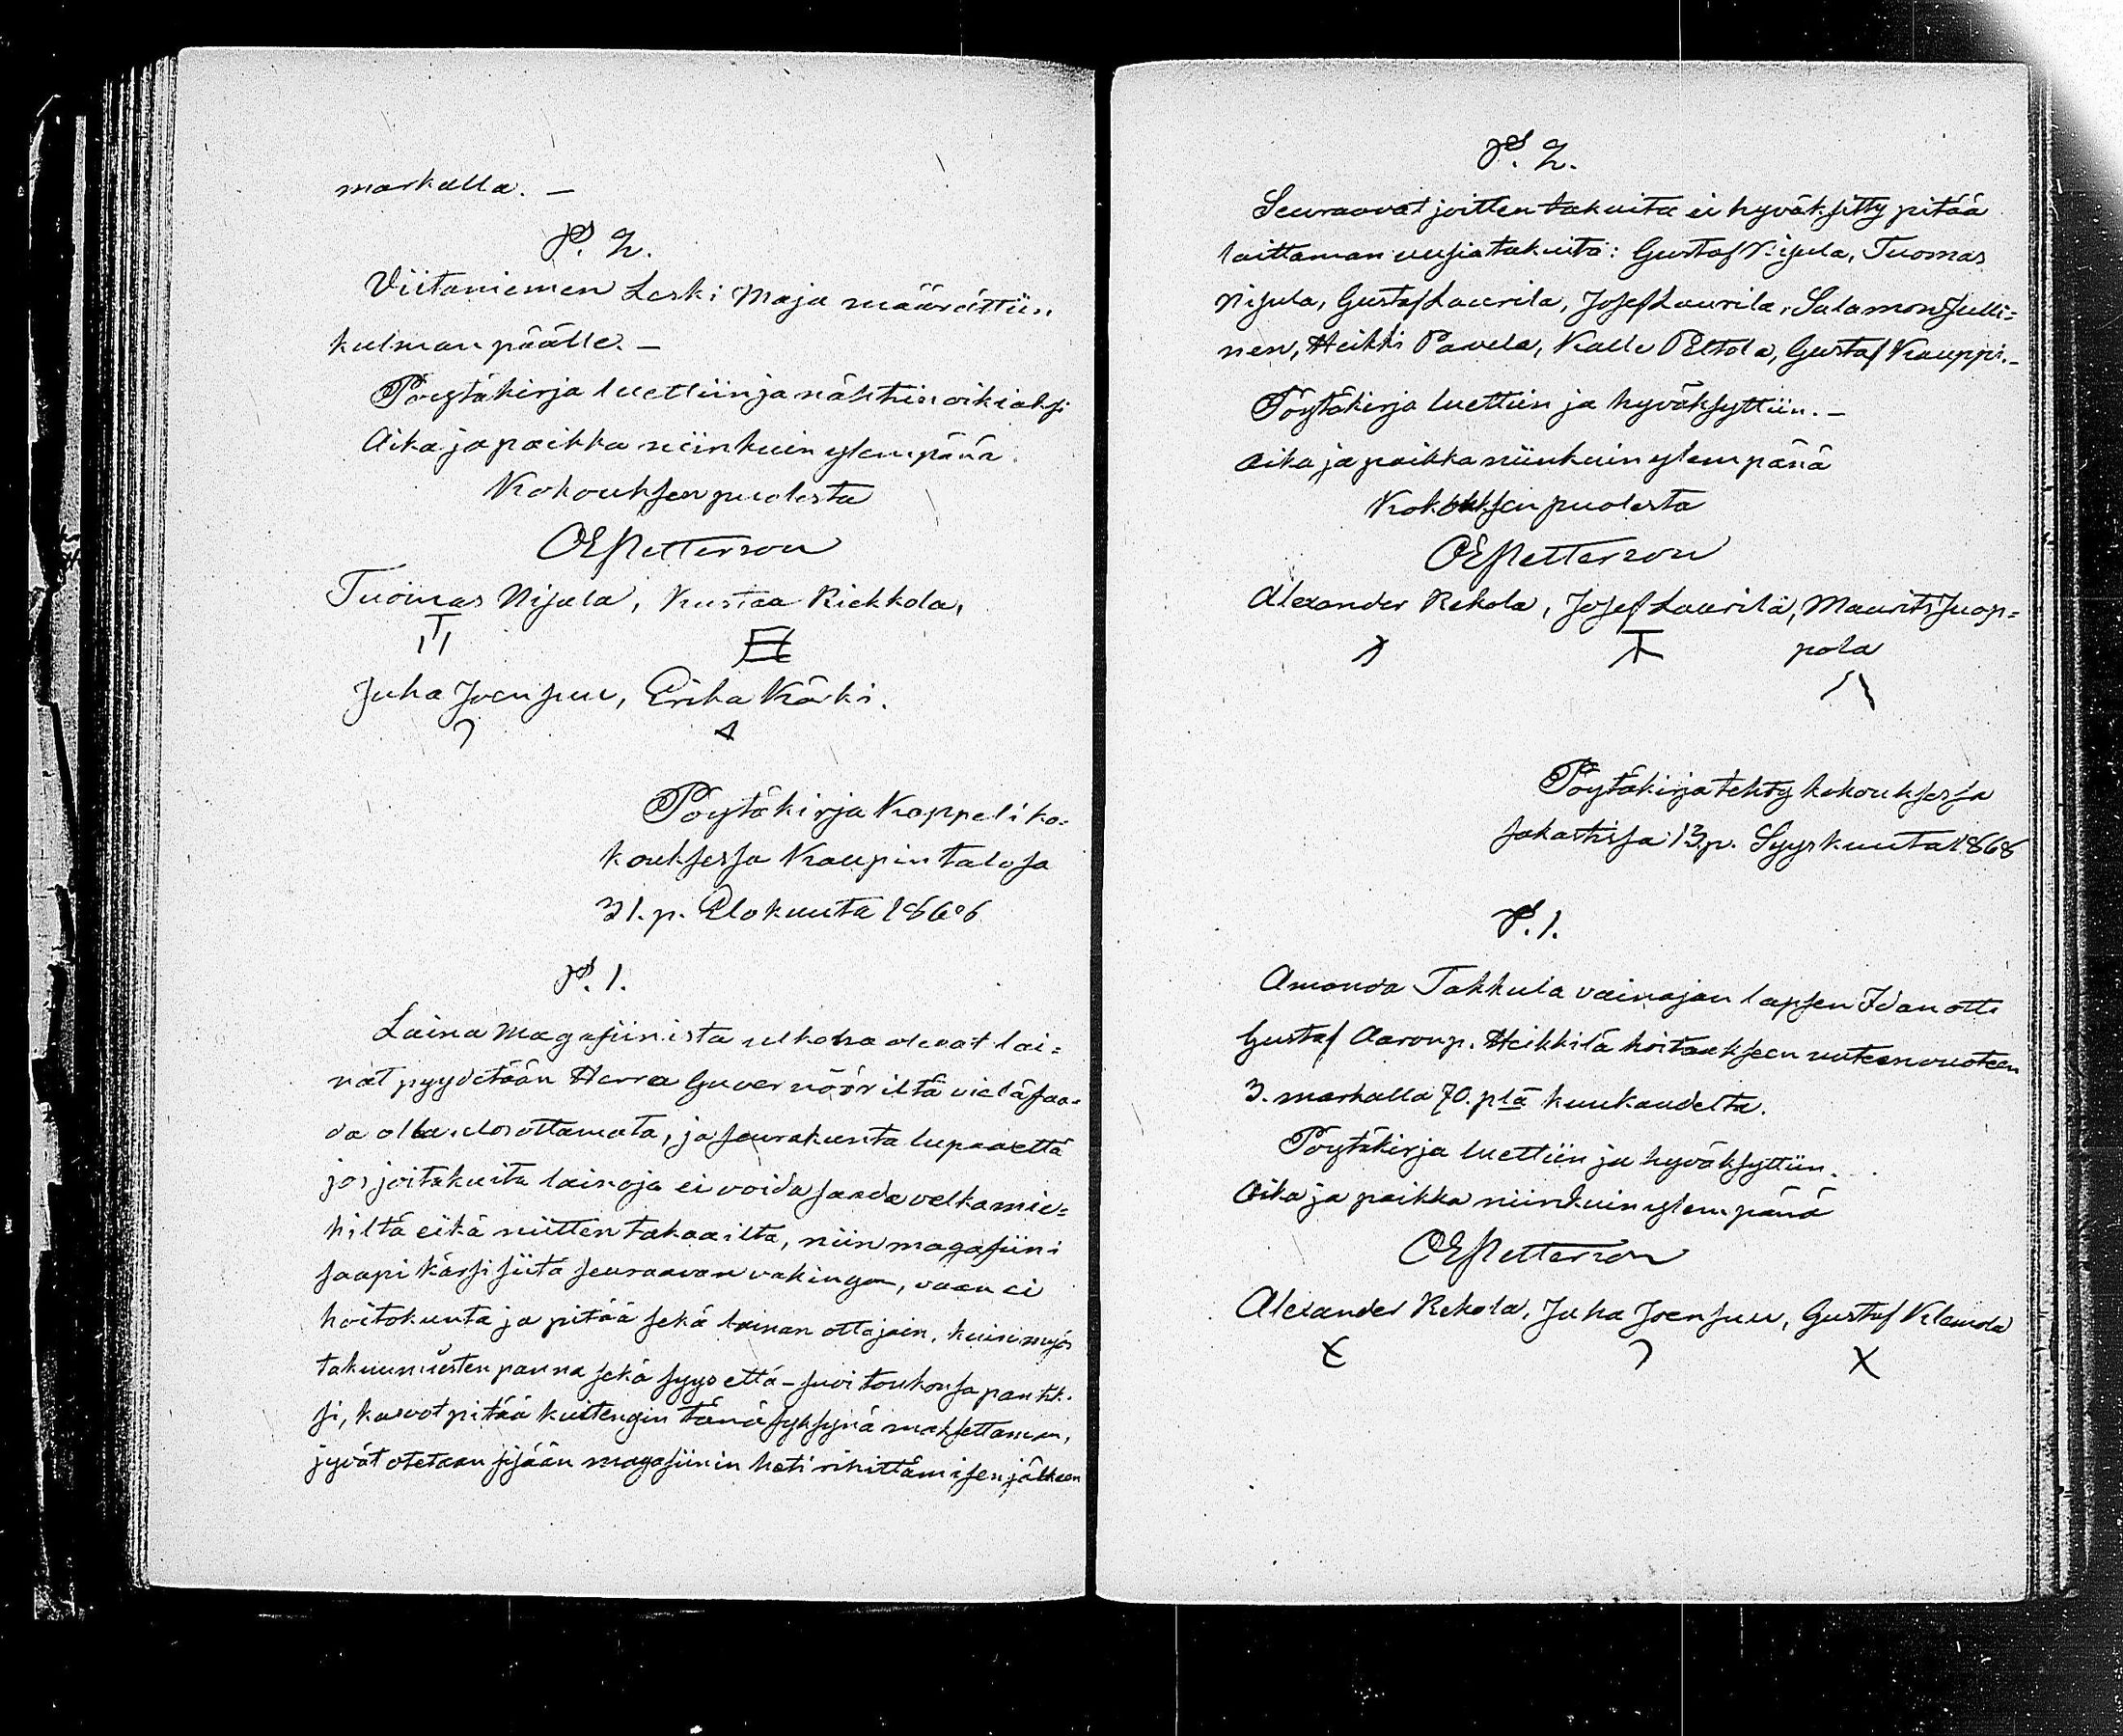 markalla. —
§. 2.
Viitaniemen Leski Maja määrättiin
kulman päälle. —
Pöytäkirja luettiin ja nähtiin oikiaksi
Aika ja paikka niinkuin ylempänä.
Kokouksen puolesta
OE Petterson
Tuomas Nisula, Kustaa Riekkola,
Juha Joensuu, Erika Kärki.
Pöytäkirja Kappeli ko=
kouksessa Kaupin talosa
31. p. Elokuuta 1868
§. 1.
Laina Magasiinista ulkona olevat lai=
nat pyydetään Herra Guvernööriltä vielä saa=
da olla ulosottamata, ja seurakunta lupaa että
jos joitakuita lainoja ei voida saada velkamie=
hiltä eikä niitten takaailta, niin magasiini
saapi kärsi siitä seuraavan vahingon, vaan ei
hoitokunta ja pitää sekä lainan ottajain, kuin myös
takuumiesten panna sekä syys että - suvi toukonsa pantik-
si, kasvot pitää kuitengin tänä syksynä maksettaman,
jyvät otetaan sisään magasiinin heti rihittämisen jälkeen
§. 2.
Seuraavat joitten takuita ei hyväksitty pitää
laittaman uusia takuita: Gustaf Nisula, Tuomas
Nisula, Gustaf Laurila, Josef Laurila, Salamon Julli=
nen, Heikki Pavela, Kalle Peltola, Gustaf Kauppi. —
Pöytäkirja luettiin ja hyväksyttiin. —
Aika ja paikka niinkuin ylempänä
Kokouksen puolesta
OE Petterson
Alexander Rekola, Josef Laurila, Maurits Juop=
pola
Pöytäkirja tehty kokouksessa
sakastisa 13 p. Syyskuuta 1868
§. 1.
Amanda Takkula vainajan lapsen Idan otti
Gustaf Aaron p. Heikkilä hoitaakseen uuteen vuoteen
3. markalla 70. plä kuukaudelta.
Pöytäkirja luettiin ja hyväksyttiin.
Aika ja paikka niinkuin ylempänä
OE Petterson
Alexander Rekola, Juha Joensuu, Gustaf Klemola